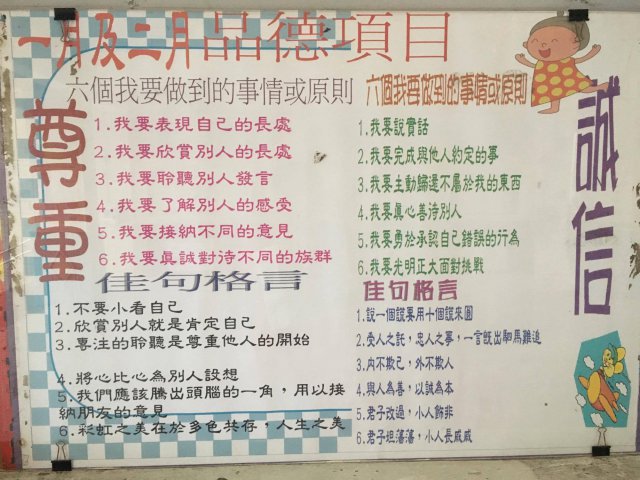 一月及二月品德項目
尊重
六個我要做到的事情或原則
1.我要表現自己的長處
2.我要欣賞別人的長處
3.我要聆聽別人發言
4.我要了解別人的感受
5.我要接納不同的意見
6.我要真誠對待不同的族群
佳句格言
1.不要小看自己
2.欣賞別人就是肯定自己
3.專注的聆聽是尊重他人的開始
4.將心比心為別人設想
5.我們應該騰出頭腦的一角，用以接
納朋友的意見
6.彩虹之美在於多色共存，人生之美
誠信
六個我要做到的事情或原則
1.我要說實話
2.我要完成與他人約定的事
3.我要主動歸還不屬於我的東西
4.我要真心善待別人
5.我要勇於承認自己錯誤的行為
6.我要光明正大面對挑戰
佳句格言
1.說一個謊要用十個謊來圓
2.受人之託，忠人之事，一言既出駟馬難追
3.內不欺己，外不欺人
4.與人為善，以誠為本
5.君子改過，小人飾非
6.君子坦蕩蕩，小人長戚戚